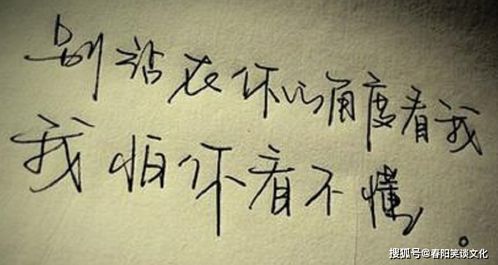 别站在你的角度看我
我怕你看不懂。
搜狐号@春阳笑谈文化